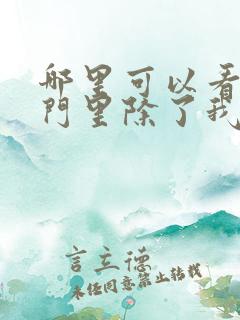 哪里可以看
门里除了我
言立德
未经同意禁止转载